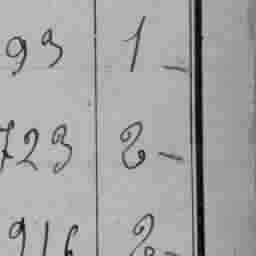 93 1 -
723 2 -
916 2 -